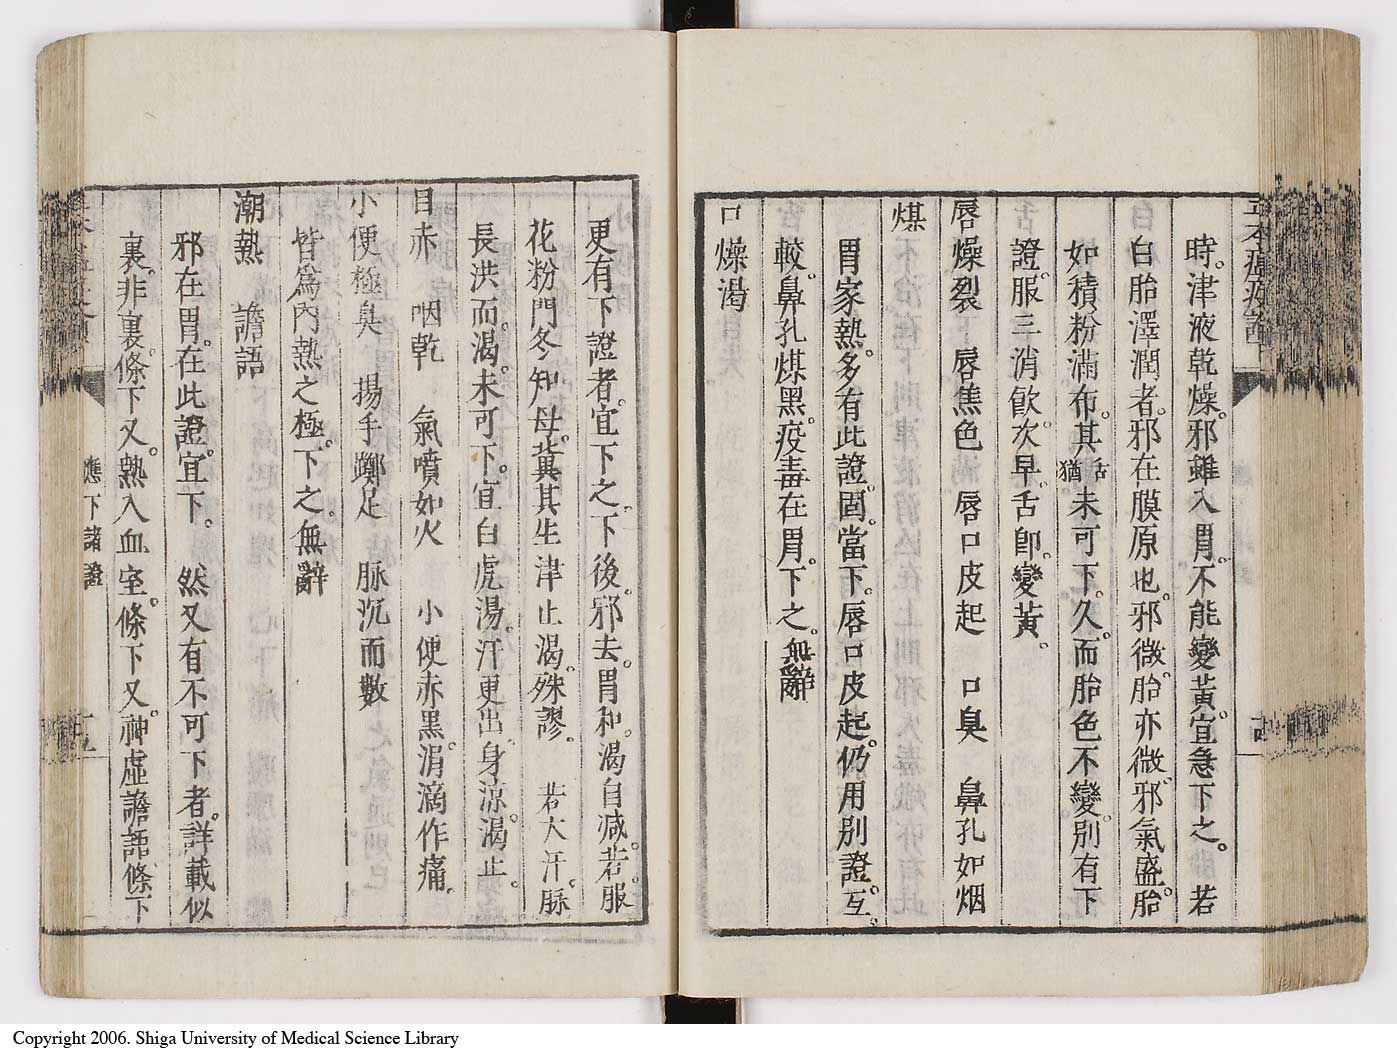 時津液乾燥邪雖入胃不能變黃宜急下之若
白胎澤潤者邪在膜原也邪微胎亦微邪氣盛胎
如積粉滿布其舌猶未可下久而胎色不變別有下
證服三消飮次早舌卽變黃
唇燥裂 唇焦色 唇口皮起 口臭 鼻孔如烟
煤
胃家熱多有此證固當下唇口皮起仍用別證互
較鼻孔煤黑疫毒在胃下之無辭
口燥渴
更有下證者宜下之下後邪去胃和渴自減若服
花粉門冬知母冀其生津止渴殊謬 若大汗脉
長洪而渴未可下宜白虎湯汗更出身涼渴止
目赤 咽乾 氣噴如火 小便赤黑涓滴作痛
小便極臭 揚手躑足 脉沉而數
皆爲內熱之極下之無辭
潮熱 譫語
邪在胃在此證宜下 然又有不可下者詳載似
裏非裏條下又熱入血室條下又神虛譫語條下
應下諸證
十五
Copyright 2006. Shiga University of Medical Science Library